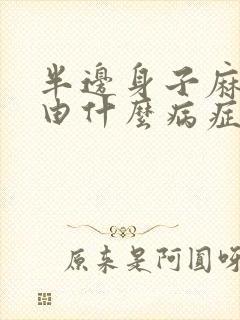 半邊身子麻
由什麼病症
原來是阿圓呀